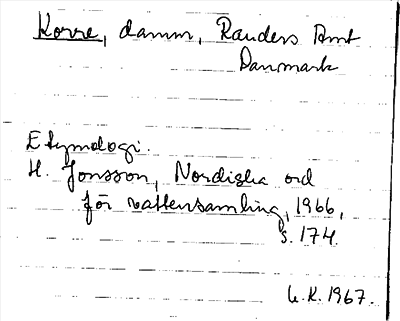 Korre, damm, Randers Amt
Danmark
Etymologi.
H. Jonsson, Nordiska ord
för vattensamling, 1966,
s. 174.
G.K. 1967.